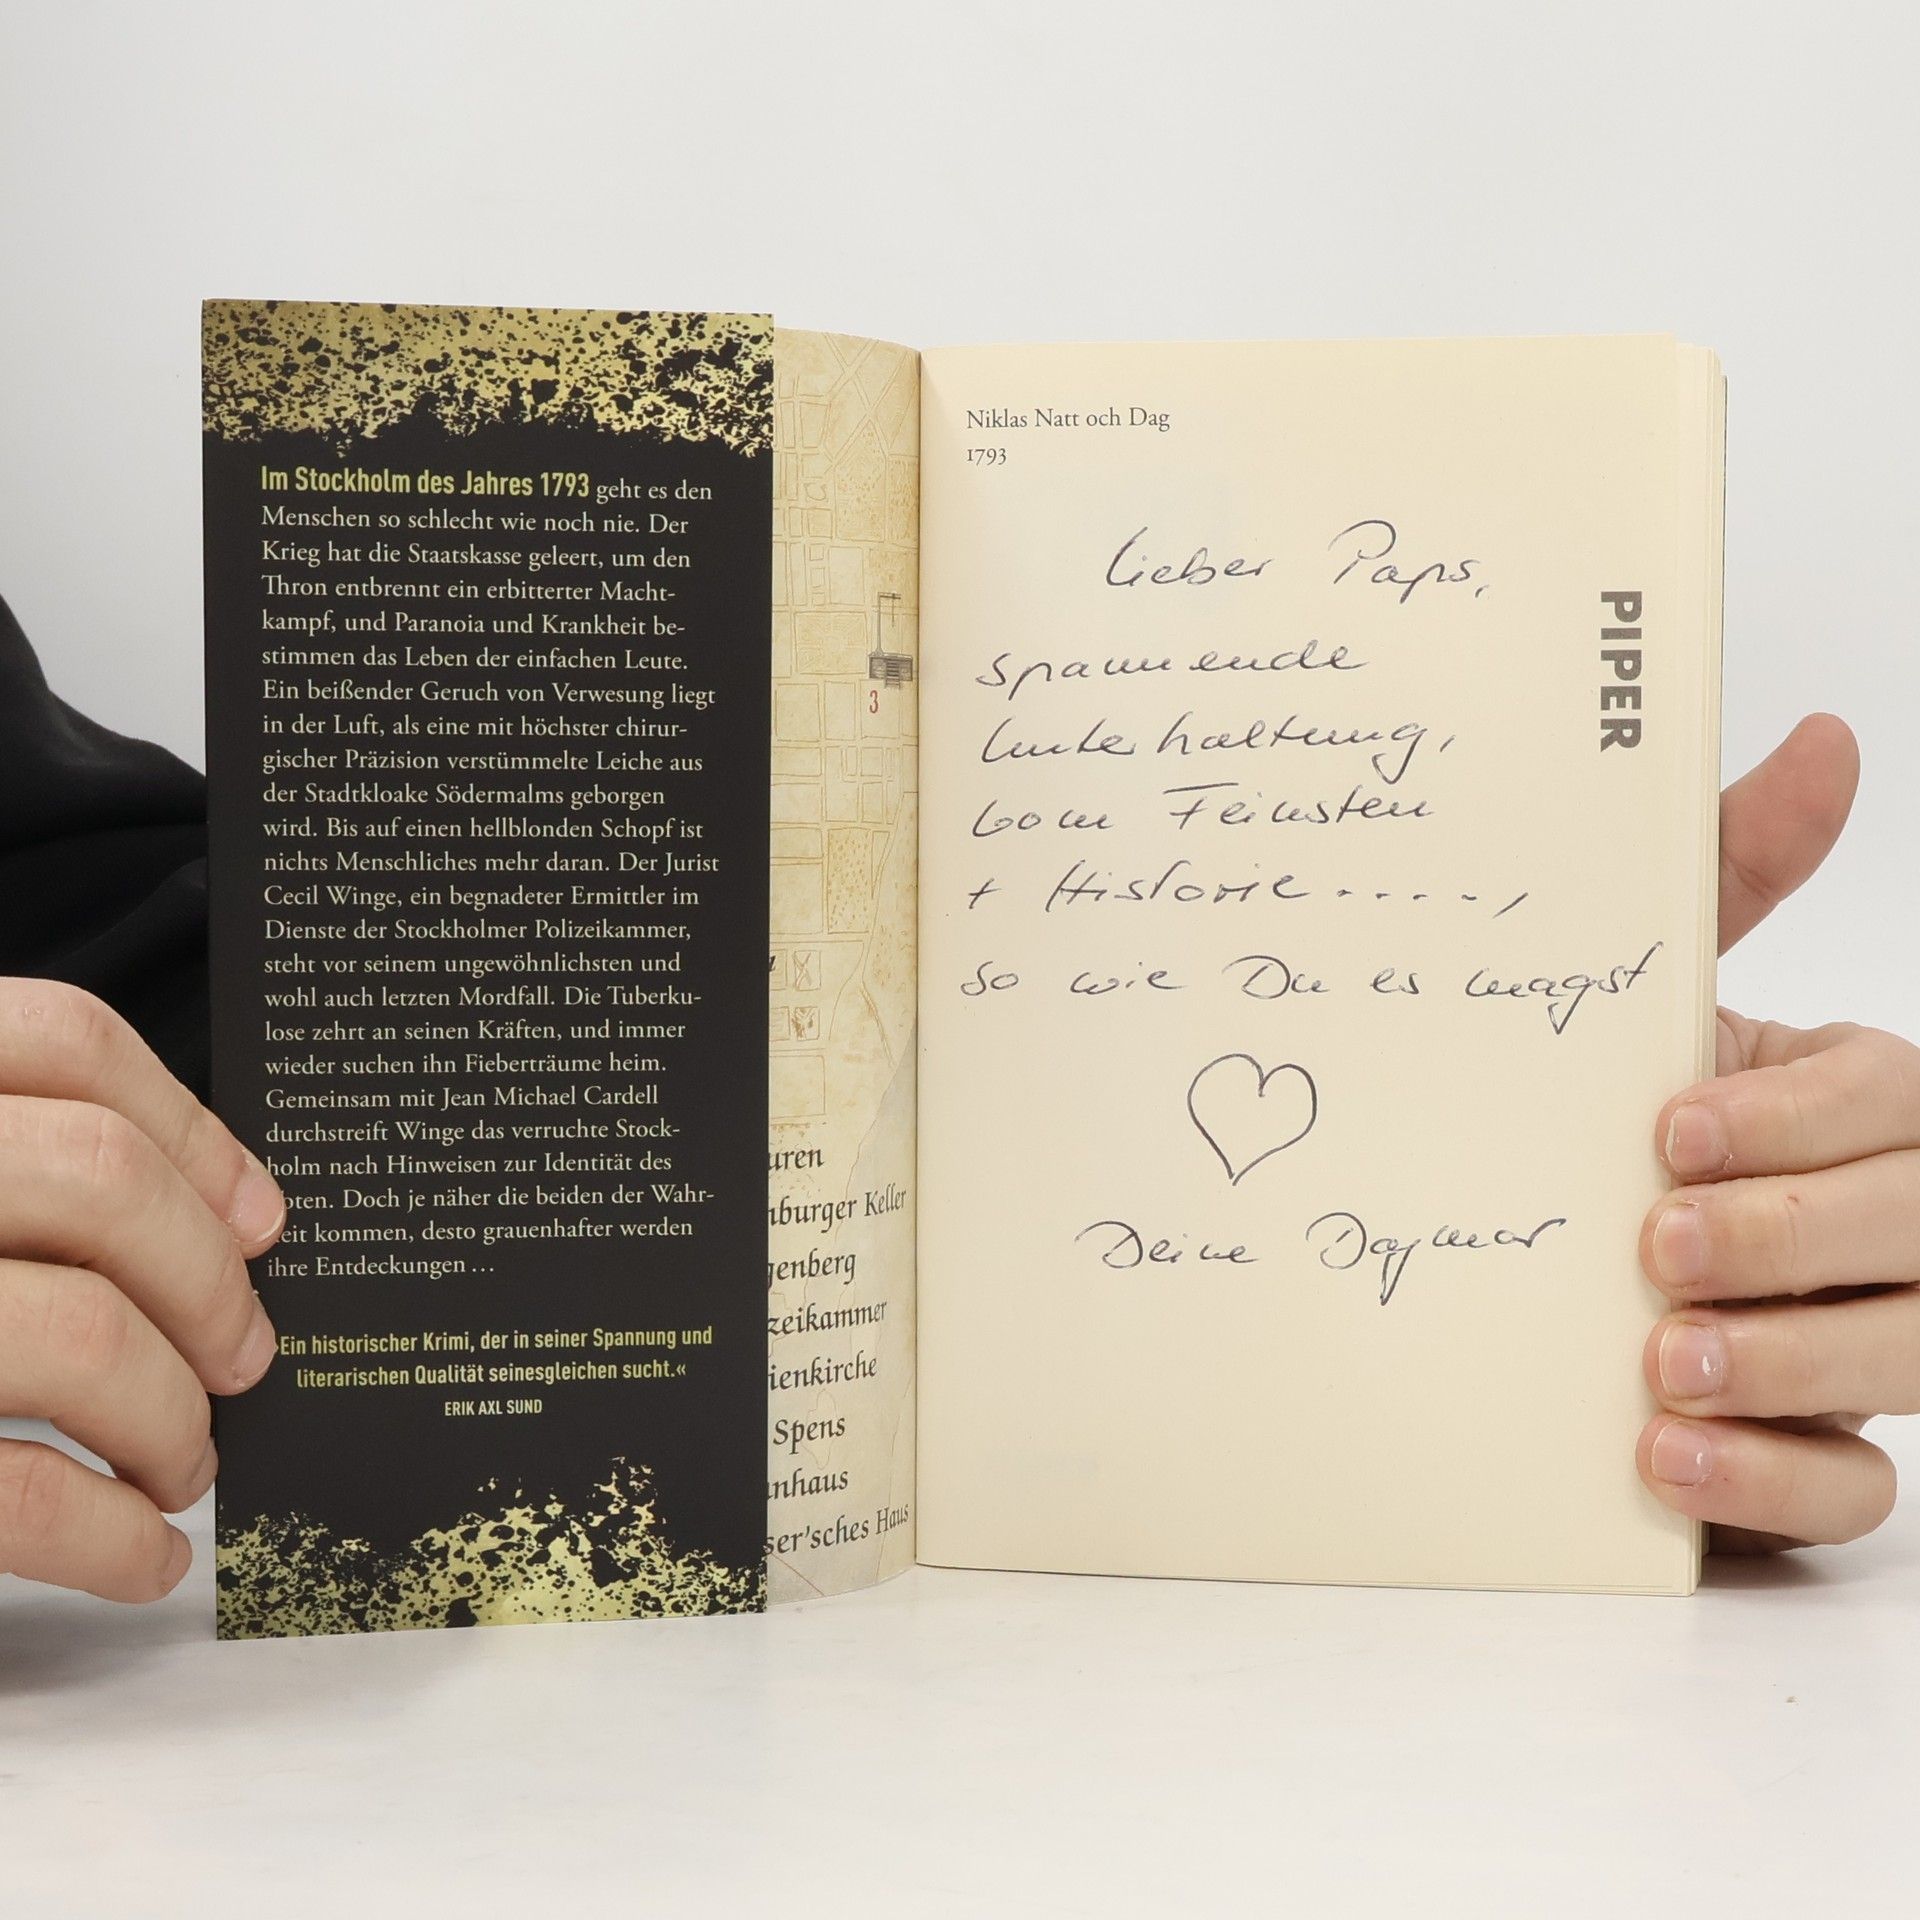 Im Stockholm des Jahres 1793 geht es den
Menschen so schlecht wie noch nie. Der
Krieg hat die Staatskasse geleert, um den
Thron entbrennt ein erbitterter Macht-
kampf, und Paranoia und Krankheit be-
stimmen das Leben der einfachen Leute.
Ein beißender Geruch von Verwesung liegt
in der Luft, als eine mit höchster chirur-
gischer Präzision verstümmelte Leiche aus
der Stadtkloake Södermalms geborgen
wird. Bis auf einen hellblonden Schopf ist
nichts Menschliches mehr daran. Der Jurist
Cecil Winge, ein begnadeter Ermittler im
Dienste der Stockholmer Polizeikammer,
steht vor seinem ungewöhnlichsten und
wohl auch letzten Mordfall. Die Tuberku-
lose zehrt an seinen Kräften, und immer
wieder suchen ihn Fieberträume heim.
Gemeinsam mit Jean Michael Cardell
durchstreift Winge das verruchte Stock-
holm nach Hinweisen zur Identität des
oten. Doch je näher die beiden der Wahr-
eit kommen, desto grauenhafter werden
ihre Entdeckungen ...
›Ein historischer Krimi, der in seiner Spannung und
literarischen Qualität seinesgleichen sucht.«
ERIK AXL SUND
3
uren
nburger Keller
genberg
zeikammer
ienkirche
Spens
nhaus
ser'sches Haus
Niklas Natt och Dag
1793
Lieber Paps,
spannende
Unterhaltung,
vom Feinsten
+ Historie .....,
so wie Du es magst
Deine Dagmar
PIPER